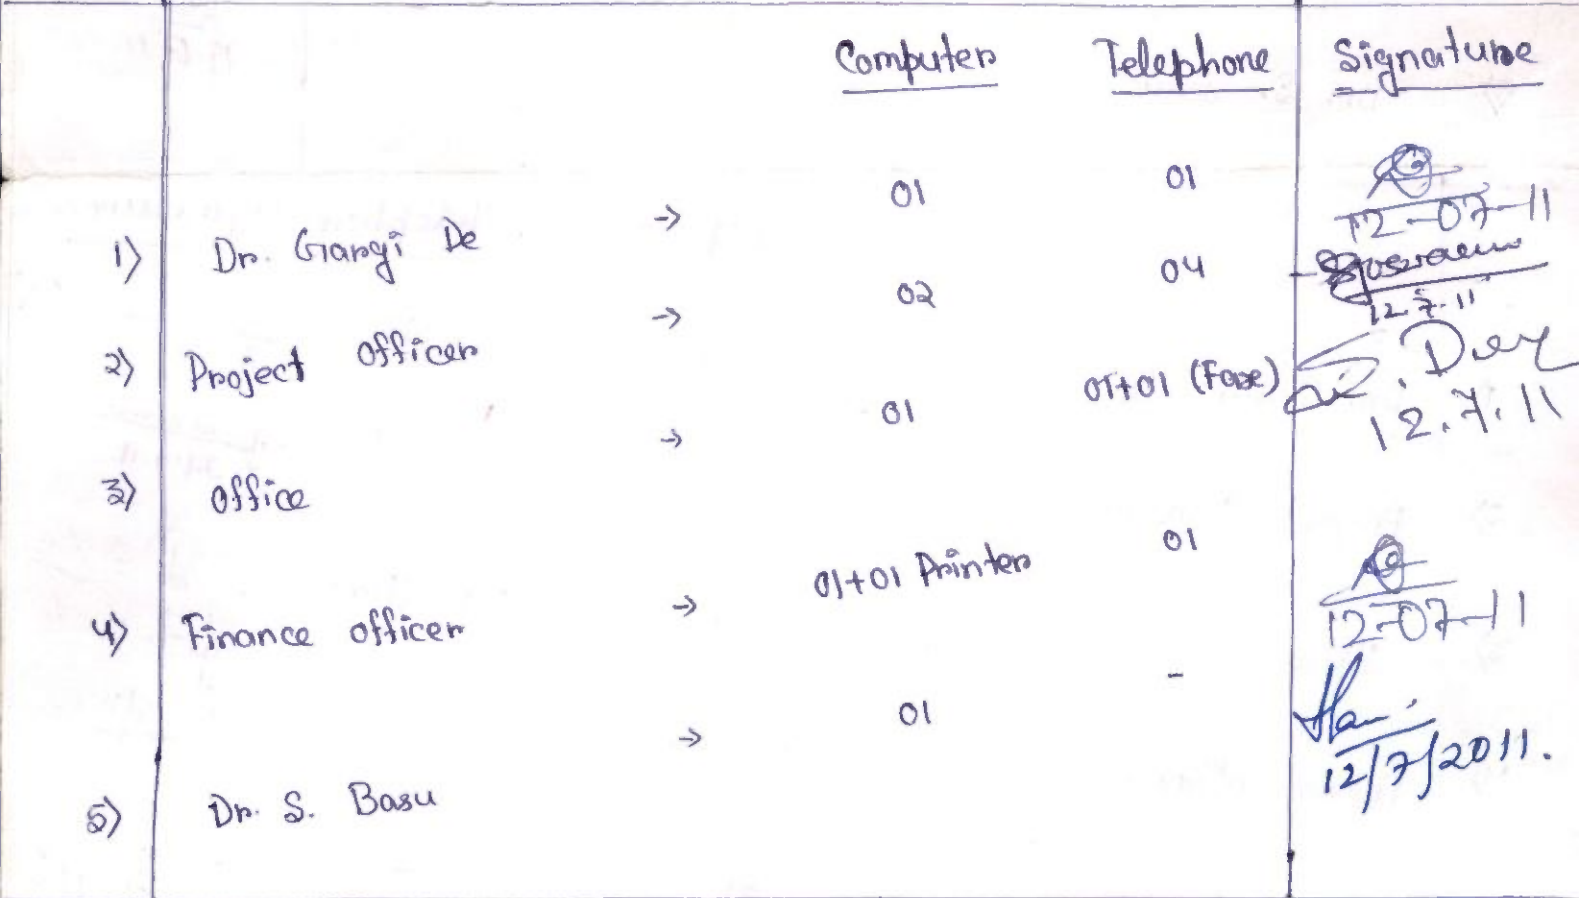 Computer Telephone Signature
1) Dr. Gargi De → 01 01 12-07-11
2) Project Officer → 02 04 Goswami 12.7.11
3) Office → 01 01+01 (Faxe) Dey 12.7.11
4) Finance officer → 01+01 Printer 01 12-07-11
5) Dr. S. Basu → 01 - 12/7/2011.